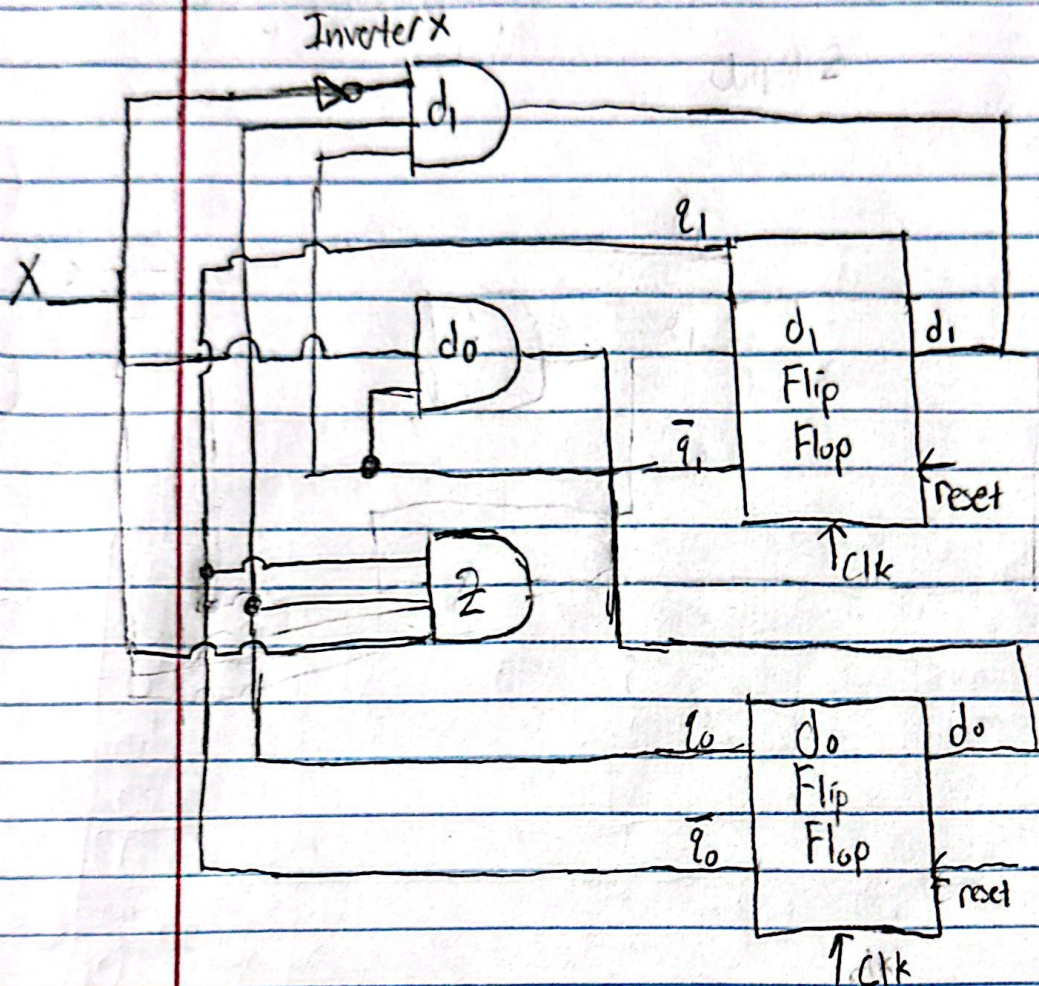 Inverter X
d₁
q₁
X
d₀
d₁
Flip
Flop
d₁
q̅₁
reset
Clk
Z
q₀
d₀
Flip
Flop
d₀
q̅₀
reset
Clk